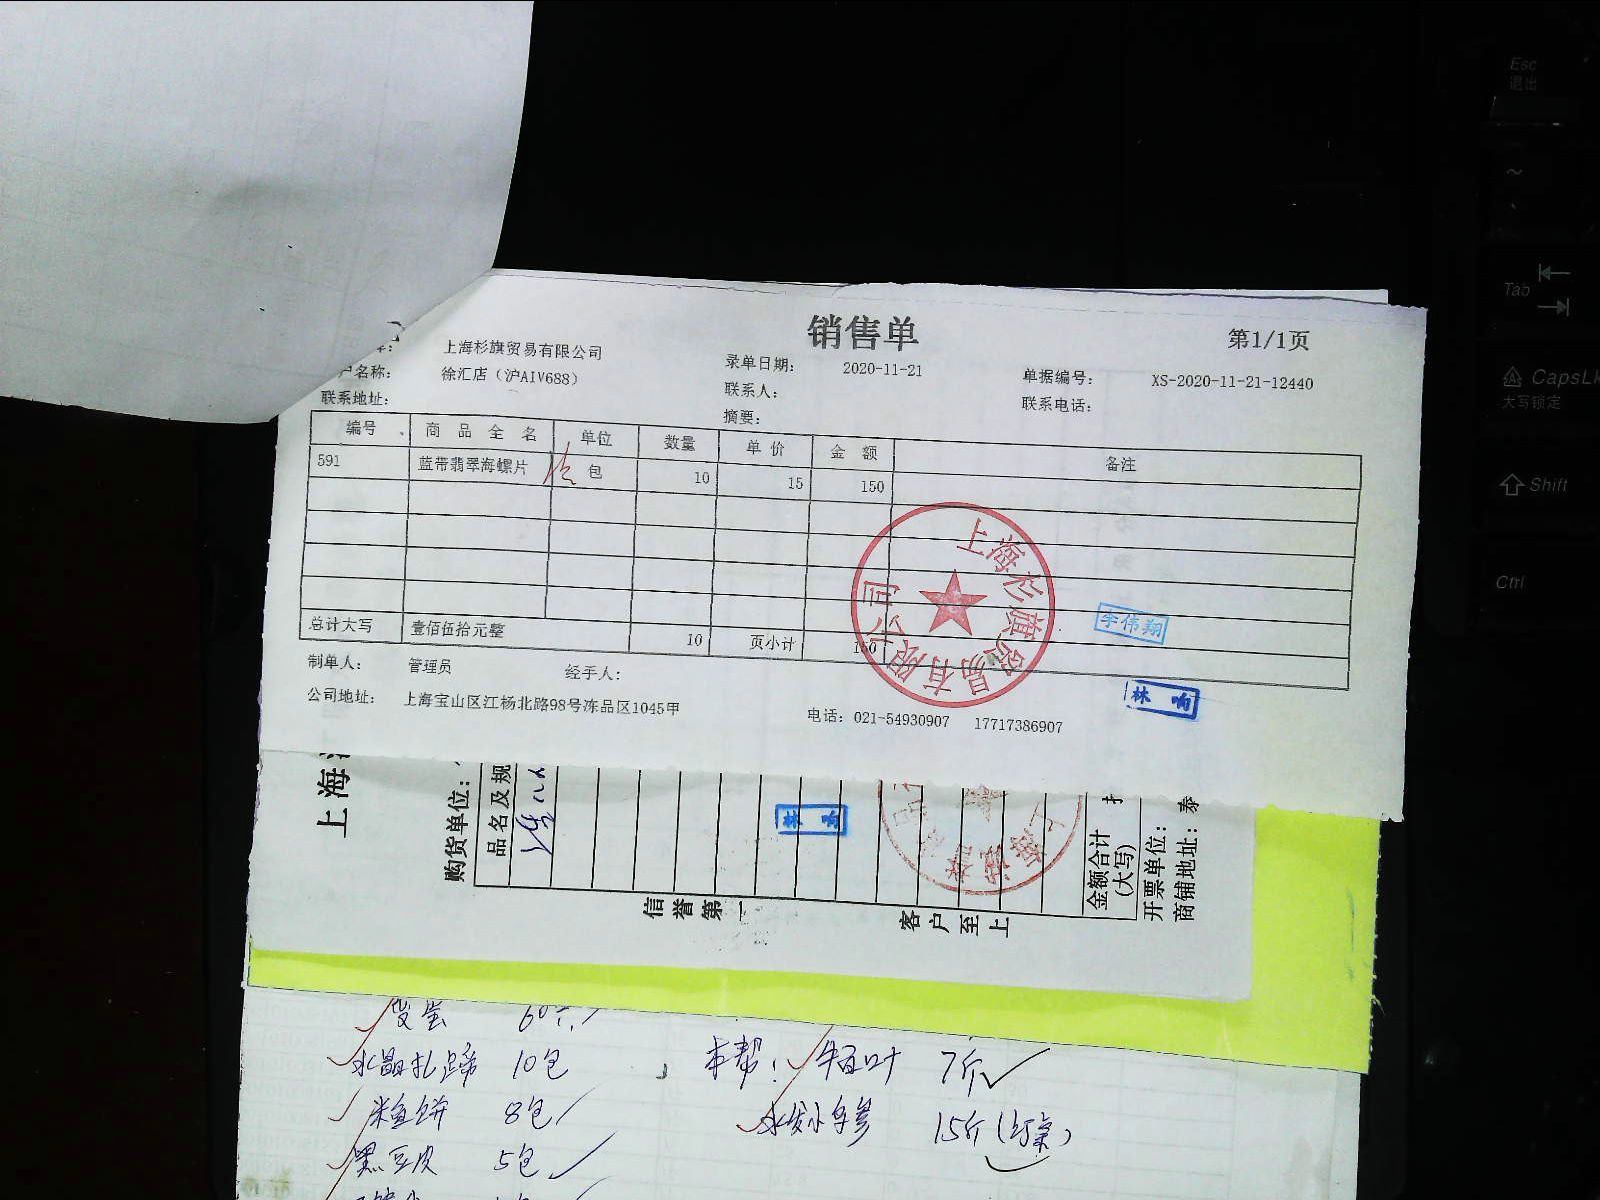 销售单
第1/1页
上海杉旗贸易有限公司
户名称: 徐汇店（沪AIV688）
录单日期: 2020-11-21
单据编号: XS-2020-11-21-12440
联系地址:
联系人:
联系电话:
摘要:
编号 商品全名 单位 数量 单价 金额 备注
591 蓝带翡翠海螺片 包 10 15 150
总计大写 壹佰伍拾元整 10 页小计 150
上海杉旗贸易有限公司
李伟翔
制单人: 管理员 经手人:
公司地址: 上海宝山区江杨北路98号冻品区1045甲
电话: 021-54930907 17717386907
上海
购货单位:
品名及规
信誉第一
客户至上
金额合计
(大写)
开票单位:
商铺地址: 泰
皮蛋 60个
水晶扎蹄 10包
本帮: 牛百叶 7斤
米鱼饼 8包
水发小乌参 15斤
黑豆皮 5包
Esc
退出
~
Tab
CapsLk
大写锁定
Shift
Ctrl